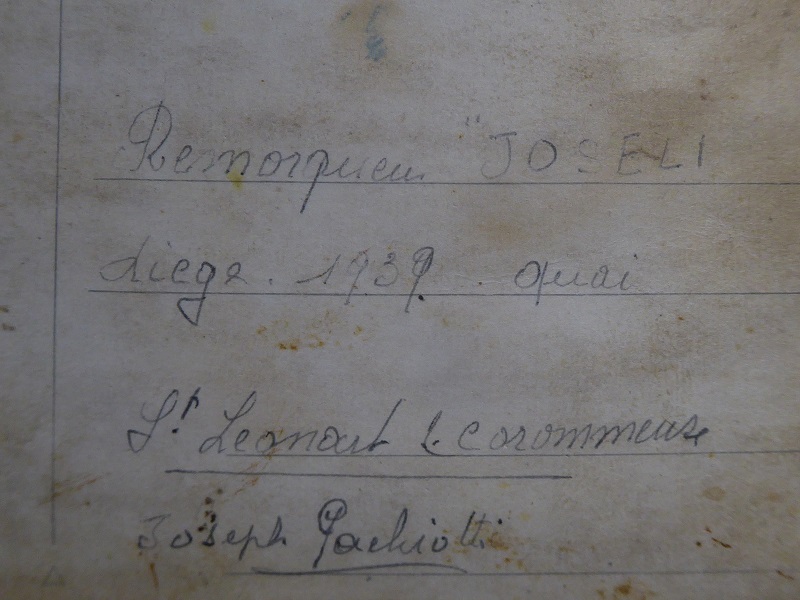 Remorqueur "JOSELI
Liege. 1939. quai
St Leonart & Corommeuse
Joseph Pachiotti